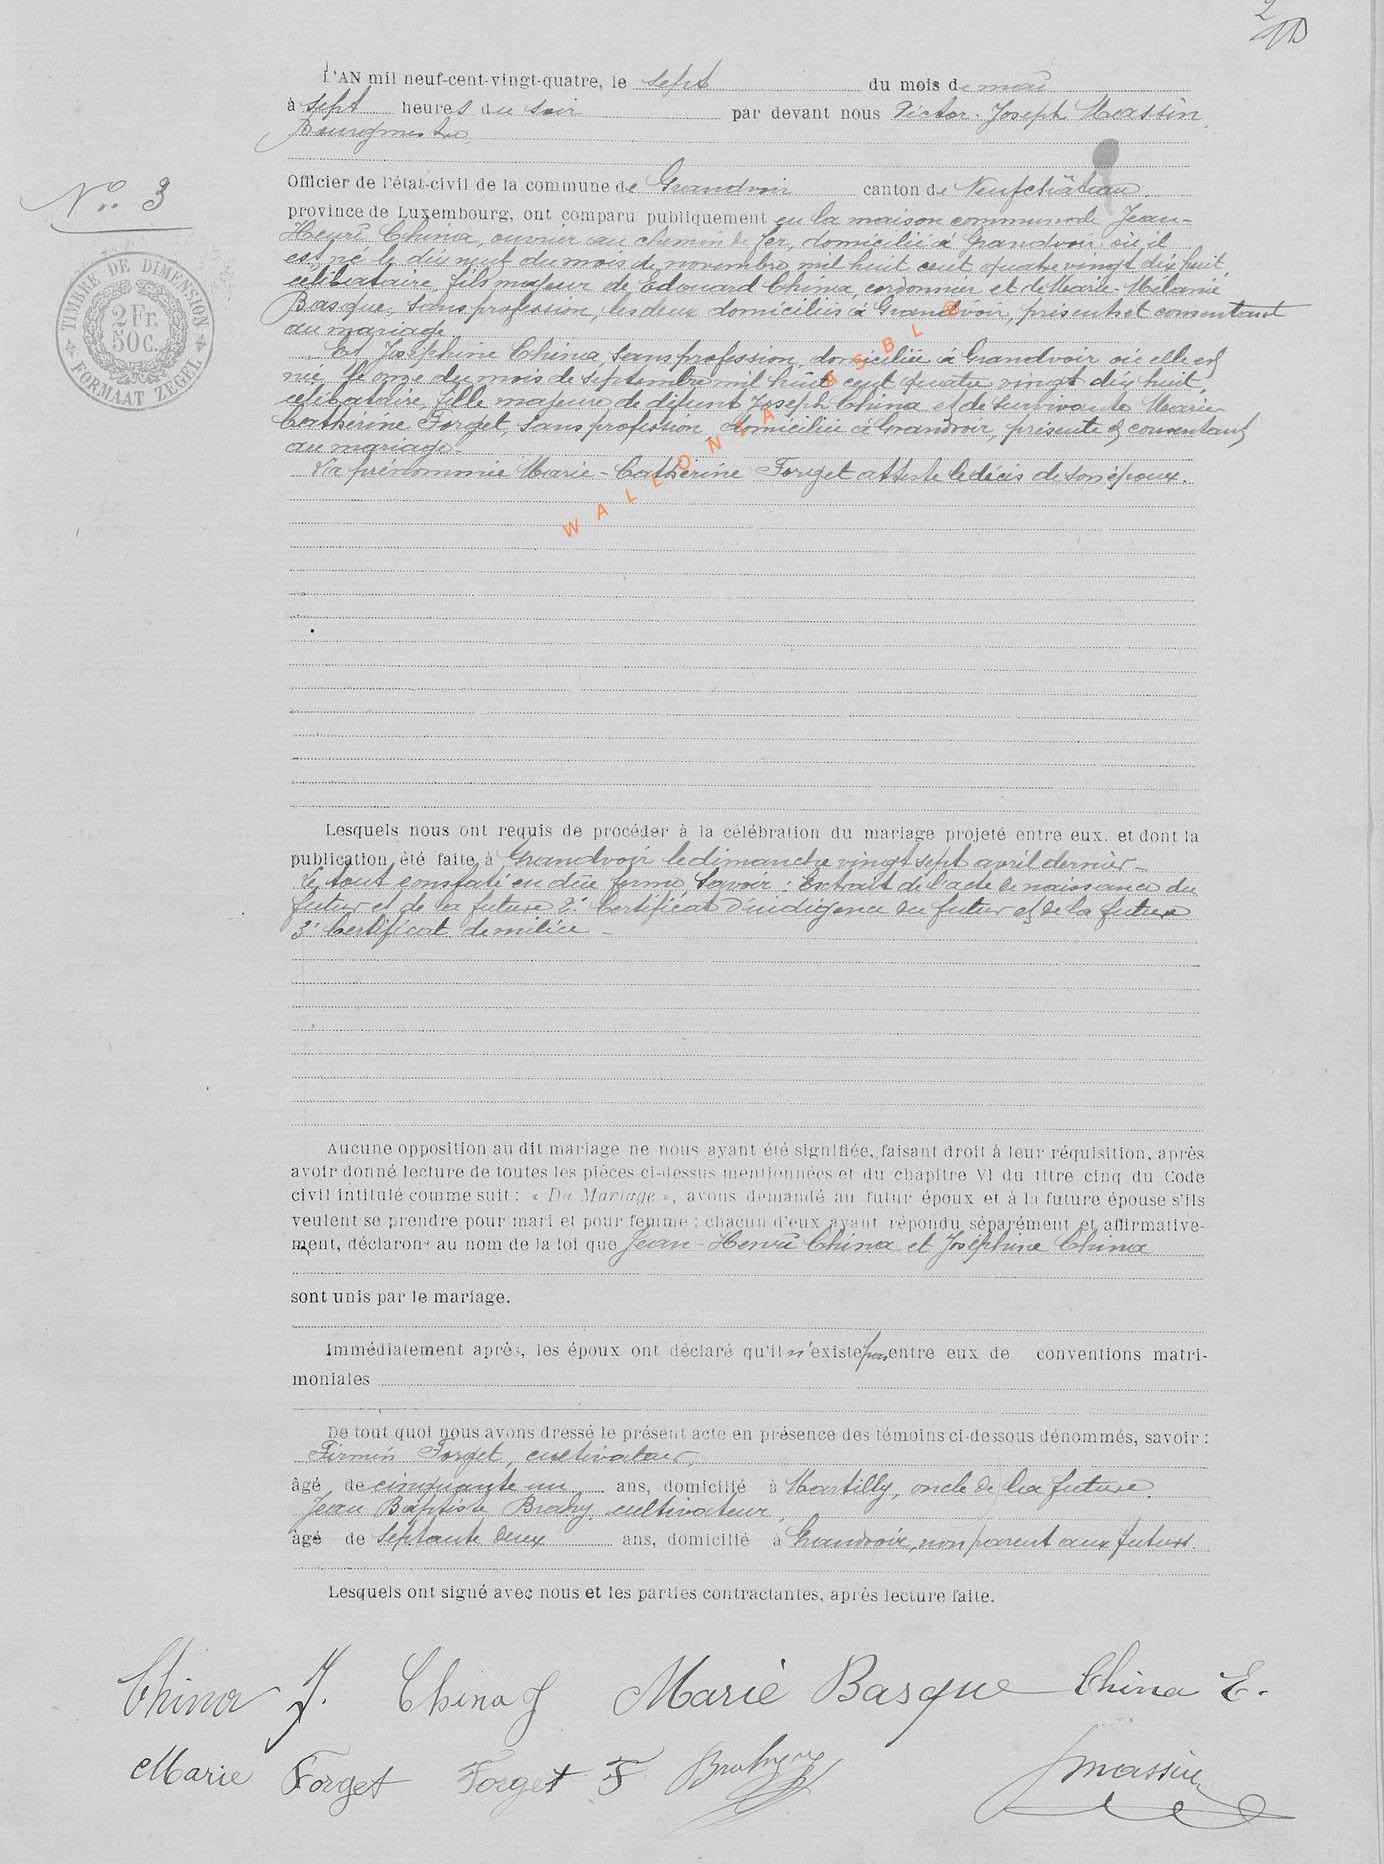 2
L'AN mil neuf-cent-vingt-quatre, le sept du mois de mai
à sept heures du soir par devant nous Victor-Joseph Massin,
Bourgmestre,
Officier de l'état-civil de la commune de Grandvoir canton de Neufchâteau
N° 3
province de Luxembourg, ont comparu publiquement en la maison communale Jean-
Henri China, ouvrier au chemin de fer, domicilié à Grandvoir où il
est né le dix neuf du mois de novembre mil huit cent quatre vingt dix huit,
célibataire, fils majeur de Edouard China, cordonnier et de Marie-Mélanie
Basque, sans profession, les deux domiciliés à Grandvoir, présents et consentant
au mariage
Et Joséphine China, sans profession, domiciliée à Grandvoir où elle est
née le onze du mois de septembre mil huit cent quatre vingt dix huit,
célibataire, fille majeure de défunt Joseph China et de survivante Marie
Catherine Forget, sans profession, domiciliée à Grandvoir, présente et consentant
au mariage.
La prénommée Marie-Catherine Forget atteste le décès de son époux.
TIMBRE DE DIMENSION
2 Fr.
50 C.
FORMAAT ZEGEL
WALLONIA ASBL ©
Lesquels nous ont requis de procéder à la célébration du mariage projeté entre eux. et dont la
publication, été faite à Grandvoir le dimanche vingt sept avril dernier -
Le tout constaté en due forme, savoir : Extrait de l'acte de naissance du
futur et de la future 2° Certificat d'indigence du futur et de la future
3° Certificat de milice -
Aucune opposition au dit mariage ne nous ayant été signifiée, faisant droit à leur réquisition, après
avoir donné lecture de toutes les pièces ci-dessus mentionnées et du chapitre VI du titre cinq du Code
civil intitulé comme suit : « Du Mariage », avons demandé au futur époux et à la future épouse s'ils
veulent se prendre pour mari et pour femme ; chacun d'eux ayant répondu séparément et affirmative-
ment, déclarons au nom de la loi que Jean-Henri China et Joséphine China
sont unis par le mariage.
Immédiatement après, les époux ont déclaré qu'il n'existe pas entre eux de conventions matri-
moniales
De tout quoi nous avons dressé le présent acte en présence des témoins ci-dessous dénommés, savoir :
Firmin Forget, cultivateur,
âgé de cinquante un ans, domicilié à Martilly, oncle de la future.
Jean Baptiste Brahy, cultivateur,
âgé de septante deux ans, domicilié à Grandvoir, non parent aux futurs.
Lesquels ont signé avec nous et les parties contractantes, après lecture faite.
China J. China J Marie Basque China E.
Marie Forget Forget F Brahy Massin